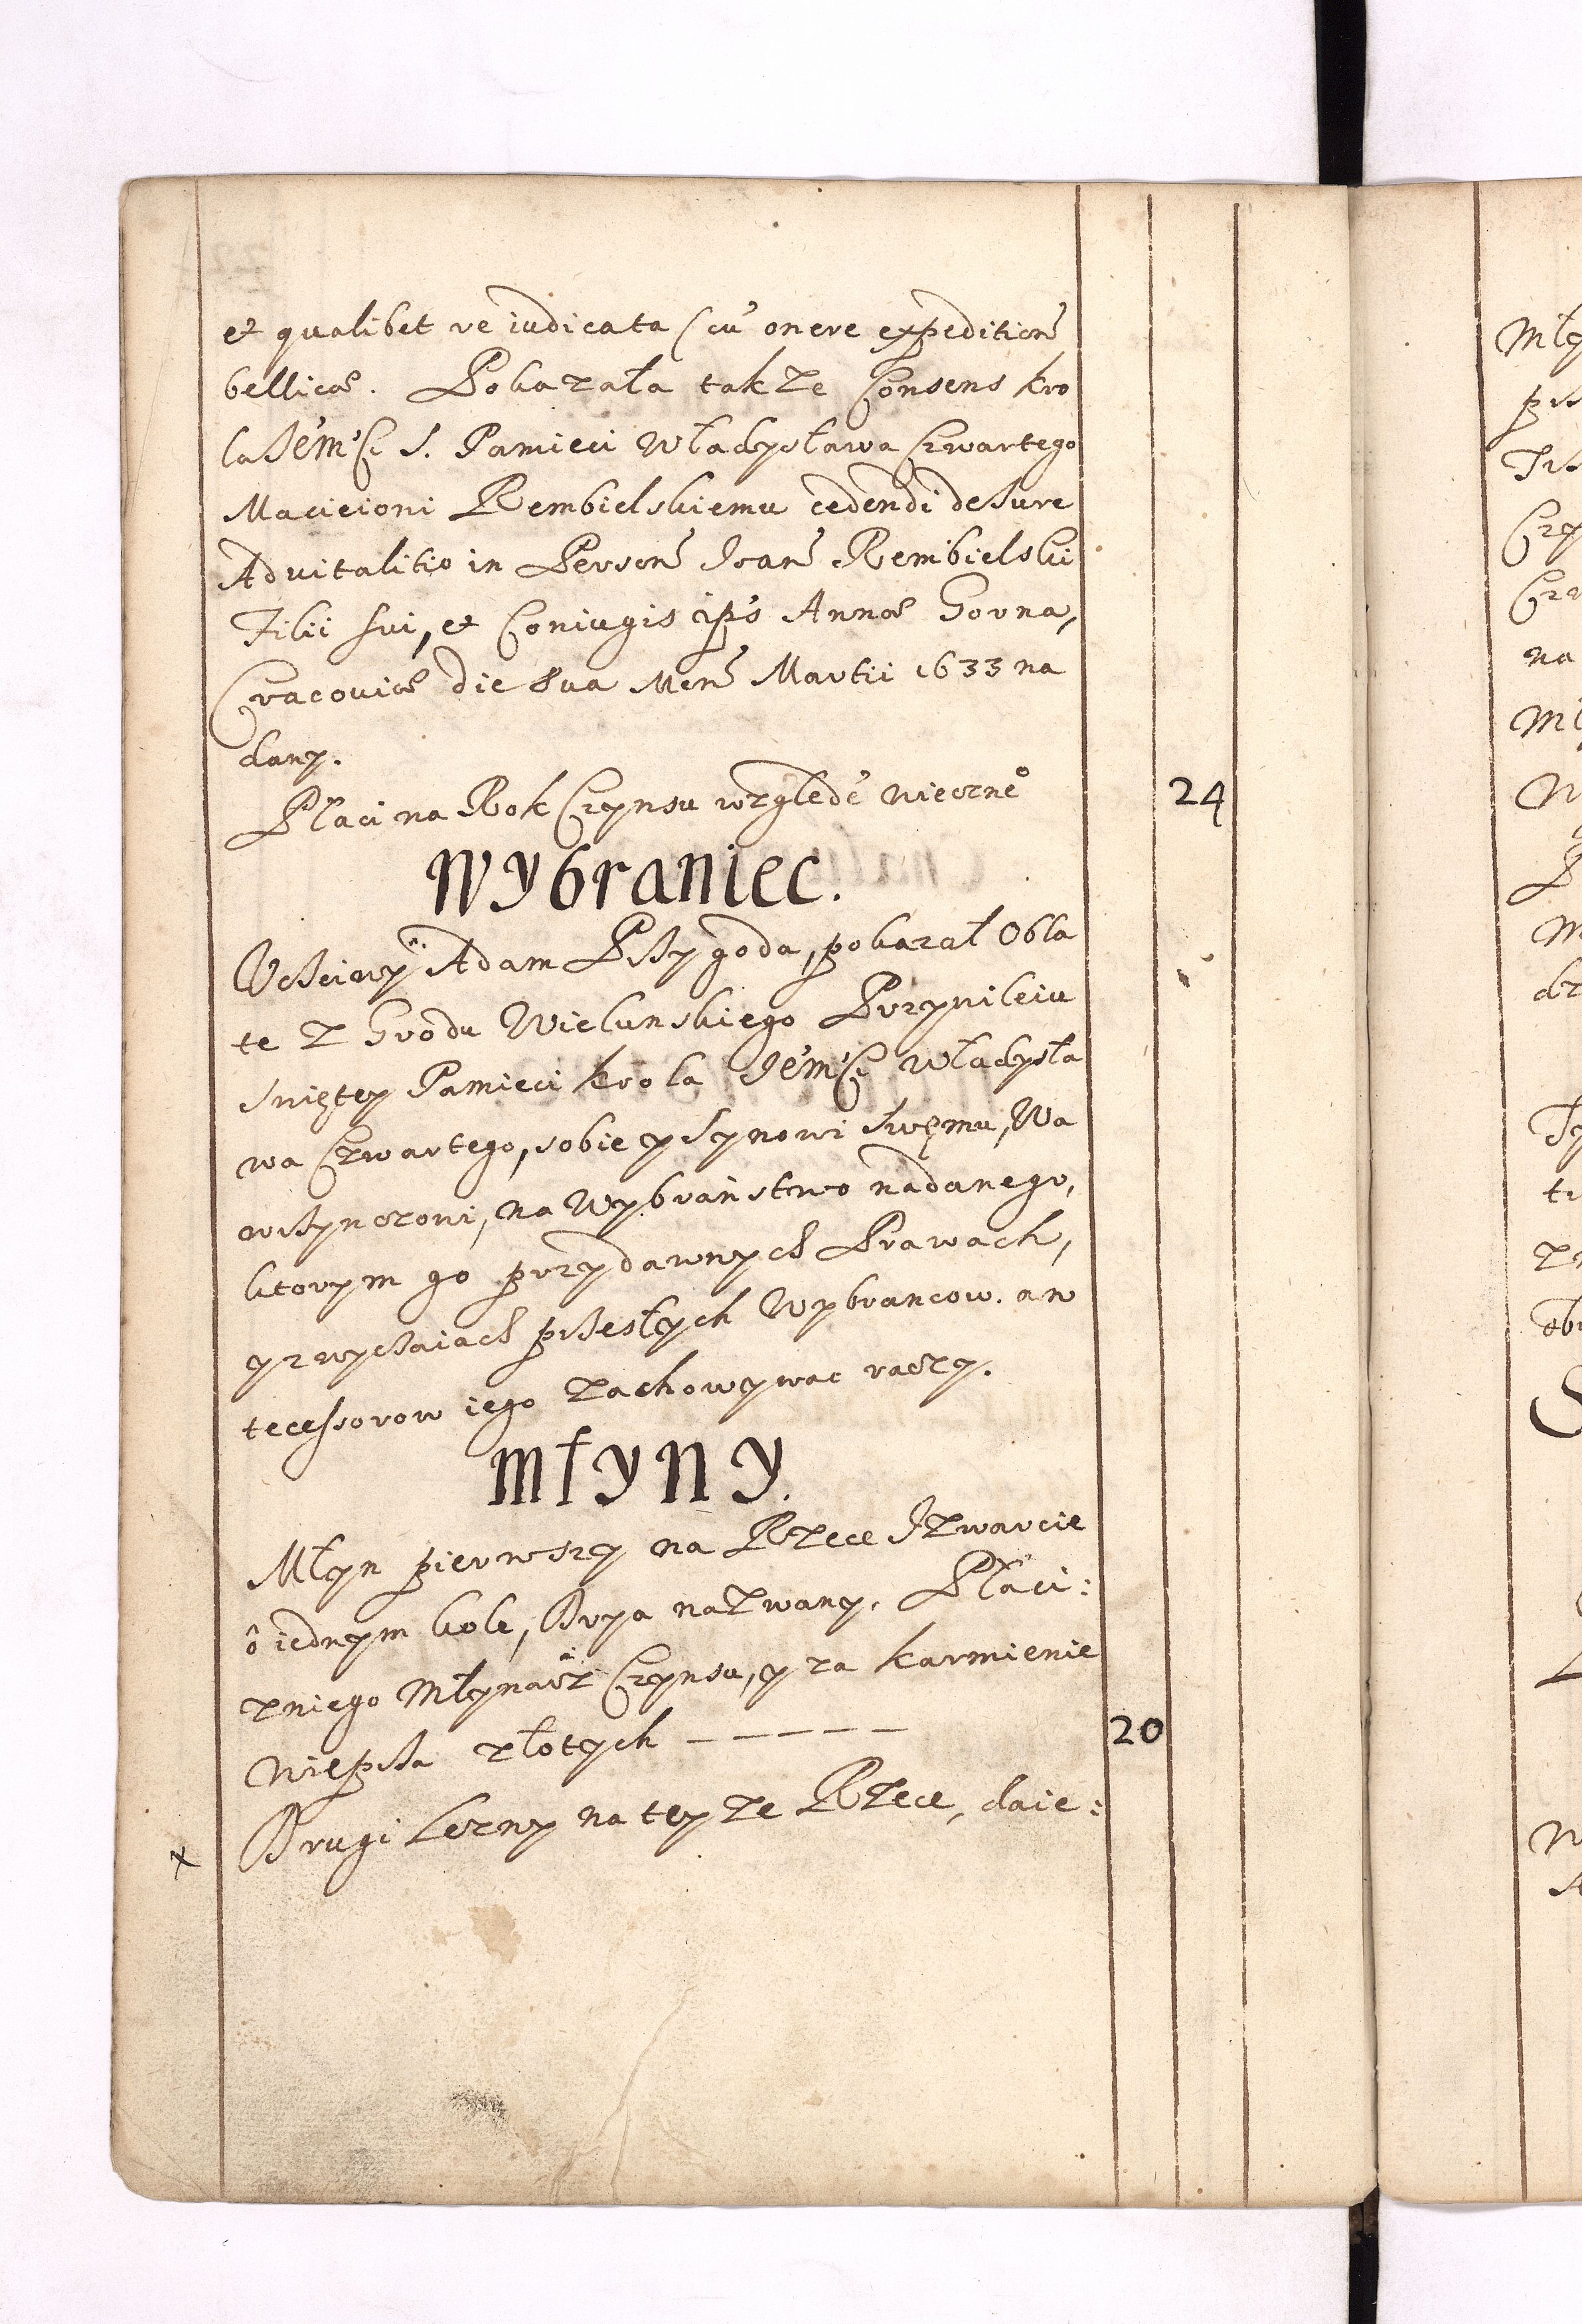 et qualibet re iudicata (cu' onere expedition
bellicae. Pokazała takze Consens kro
la Je'm'ci S. Pamieci Władysława Czwartego
Macieioni Rembielskiemu cedendi de Jure
Advitalitio in Person Joan Rembielski
Filii sui, et Coniugis ips Annae Gorna,
Cracoviae die 8ua Men Martii 1633 na
dany.
Płaci na Rok Czynsu wzglede' wieczne°
24
Wybraniec.
Uczciwy Adam Przygoda, pokazał Obla
te z Grodu Wielunskiego Przywileiu
swiętey Pamieci krola Je'm'ci Władysła
wa Czwartego, sobie y synowi swęmu, Wa
wrzynczowi, na Wybraństwo nadanego,
ktorym go przy dawnych Prawach,
y zwyczaiach przeszłych Wybrancow. an
tecessorow iego zachowywac raczy.
Młyny.
Młyn pierwszy na Rzece Izwarcie
ô iednym kole, Brya nazwany. Płaci:
zniego Młynarz Czynsu, y za karmienie
Wieprza złotych — — — — —
20
Drugi Lezny na teyze Rzece, daie:
x